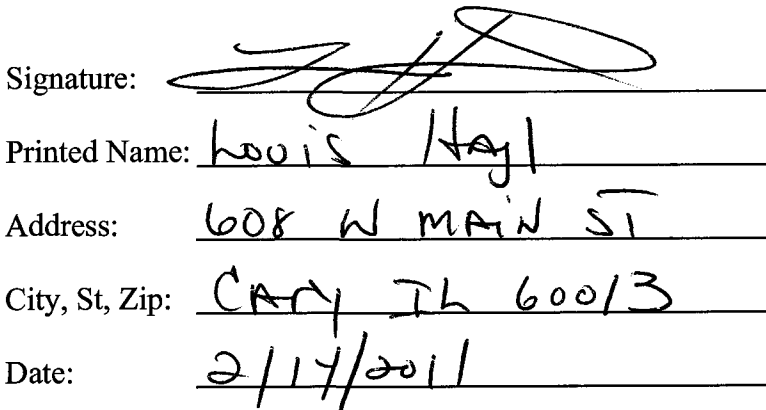 Signature:
Printed Name: Louis Hagl
Address: 608 W MAIN ST
City, St, Zip: CARY IL 60013
Date: 2/17/2011